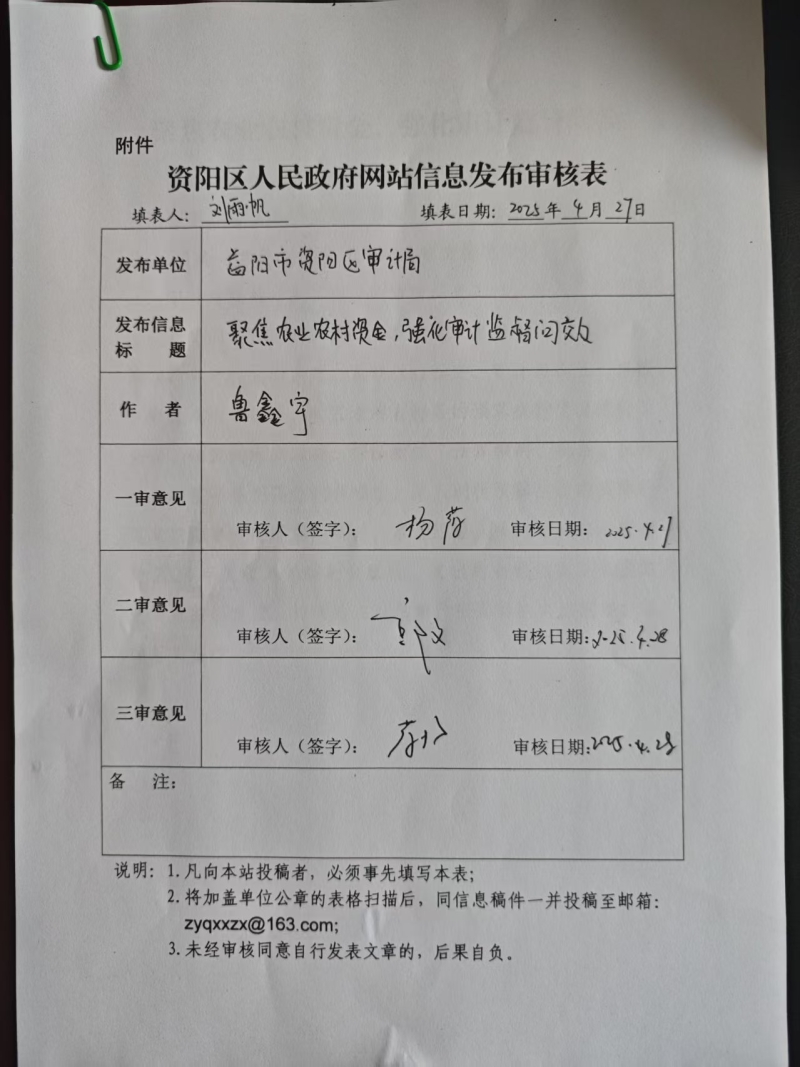 附件
资阳区人民政府网站信息发布审核表
填表人: 刘雨帆 填表日期: 2025年4月27日
发布单位 益阳市资阳区审计局
发布信息标题 聚焦农业农村资金,强化审计监督问效
作者 鲁鑫宇
一审意见 审核人(签字): 杨 审核日期: 2025.4.27
二审意见 审核人(签字): 审核日期: 2025.4.28
三审意见 审核人(签字): 审核日期: 2025.4.28
备注:
说明: 1. 凡向本站投稿者,必须事先填写本表;
2. 将加盖单位公章的表格扫描后,同信息稿件一并投稿至邮箱:
zyqxxzx@163.com;
3. 未经审核同意自行发表文章的,后果自负。